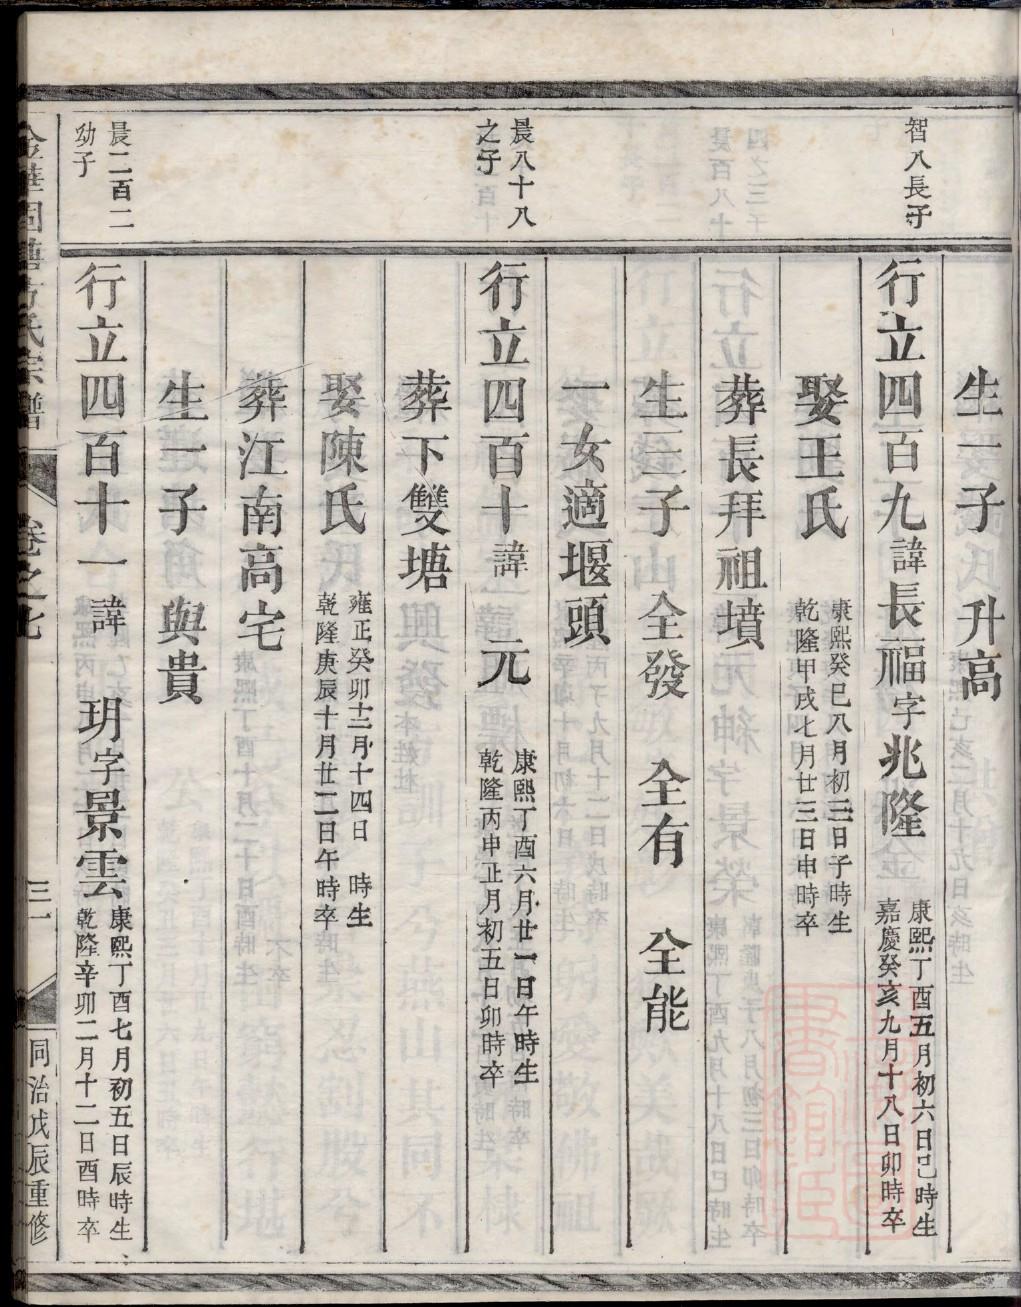 生一子 升高
智八長子
行立四百九 諱 長福 字 兆隆 康熙丁酉五月初六日巳時生
嘉慶癸亥九月十八日卯時卒
娶王氏 康熙癸巳八月初三日子時生
乾隆甲戌七月廿三日申時卒
葬長拜祖墳
生三子 全發 全有 全能
一女適堰頭
晨八十八
之子
行立四百十 諱 元 康熙丁酉六月廿一日午時生
乾隆丙申正月初五日卯時卒
葬下雙塘
娶陳氏 雍正癸卯十二月十四日 時生
乾隆庚辰十月廿二日午時卒
葬江南高宅
生一子 與貴
晨二百二
幼子
行立四百十一 諱 玥 字 景雲 康熙丁酉七月初五日辰時生
乾隆辛卯二月十二日酉時卒
氏宗譜
卷之七
三一
同治戊辰重修